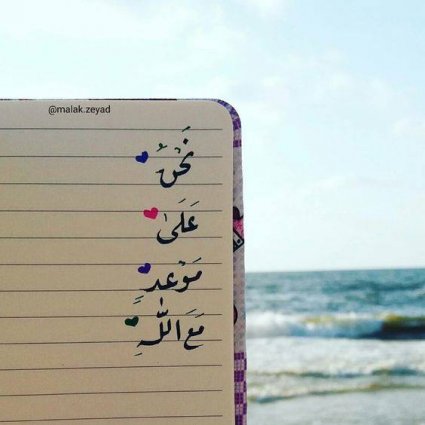 @malak.zeyad
نَحْنُ
عَلَىٰ
مَوْعدٍ
مَعَ اللّٰهِ